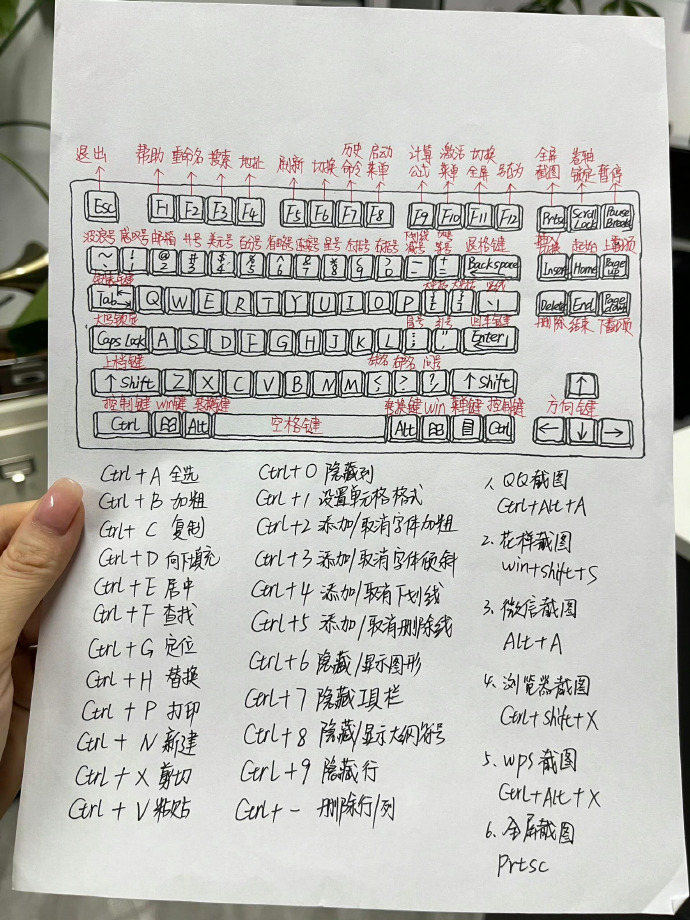 历史 启动 计算 激活 切换 全屏 卷轴
退出 帮助 重命名 搜索 地址 刷新 切换 命令 菜单 公式 菜单 全屏 另存为 截图 锁定 暂停
Esc F1 F2 F3 F4 F5 F6 F7 F8 F9 F10 F11 F12 Prtsc Scroll Lock Pause Break
波浪号 感叹号 邮箱 井号 美元号 百分号 星号 减号 退格键 起始 上翻页
~ ` ! 1 @ 2 # 3 $ 4 % 5 ^ 6 & 7 * 8 ( 9 ) 0 - + = Backspace Insert Home Page up
Tab Q W E R T Y U I O P \ Delete End Page down
大写锁定 冒号 引号 回车键 删除 结束 下翻页
Caps Lock A S D F G H J K L : ; " Enter
上档键 问号
↑ Shift Z X C V B N M < > ? / ↑ Shift ↑
控制键 win键 空格键 win 控制键 方向键
Ctrl Alt Alt Ctrl ← ↓ →
Ctrl + A 全选
Ctrl + B 加粗
Ctrl + C 复制
Ctrl + D 向下填充
Ctrl + E 居中
Ctrl + F 查找
Ctrl + G 定位
Ctrl + H 替换
Ctrl + P 打印
Ctrl + N 新建
Ctrl + X 剪切
Ctrl + V 粘贴
Ctrl + 0 隐藏列
Ctrl + 1 设置单元格格式
Ctrl + 2 添加/取消字体加粗
Ctrl + 3 添加/取消字体倾斜
Ctrl + 4 添加/取消下划线
Ctrl + 5 添加/取消删除线
Ctrl + 6 隐藏/显示图形
Ctrl + 7 隐藏工具栏
Ctrl + 8 隐藏/显示大纲符号
Ctrl + 9 隐藏行
Ctrl + - 删除行/列
1、QQ截图
Ctrl+Alt+A
2、花样截图
win+shift+S
3、微信截图
Alt+A
4、浏览器截图
Ctrl+shift+X
5、wps截图
Ctrl+Alt+X
6、全屏截图
Prtsc